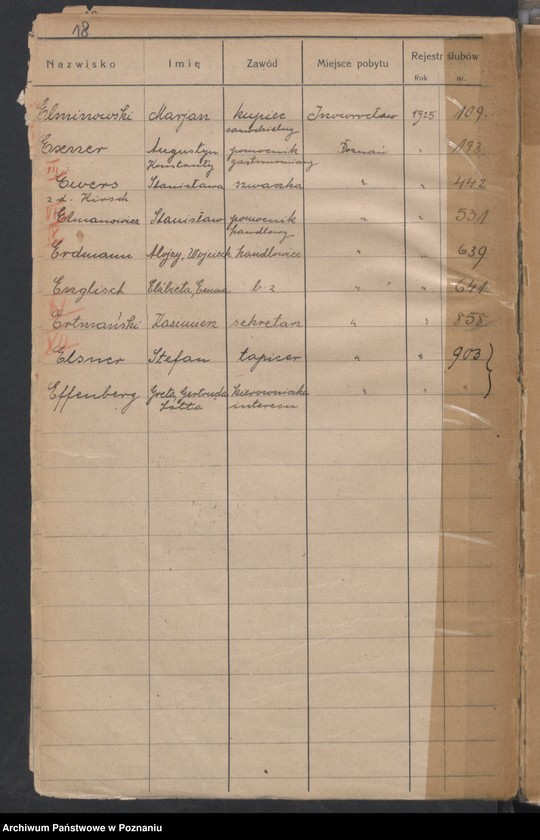 18
Nazwisko Imię Zawód Miejsce pobytu Rejestr ślubów
Rok nr.
Elminowski Marjan kupiec Inowrocław 1925 109.
samodzielny
Exner Augustyn pomocnik Poznań " 193
Konstanty gastronomiany
VII
Ewers Stanisława szwaczka " " 442
z d. Hirsch
Elmanowicz Stanisław pomocnik " " 531
handlowy
Erdmann Alojzy, Wojciech handlowiec " " 639
Englisch Elżbieta, Emma b z " " " 641
Ertmański Kazimierz sekretarz " " 858
XII
Elsner Stefan tapicer " " 903
Effenberg Greta, Gertruda kierowniczka " " "
Lotta interesu
Archiwum Państwowe w Poznaniu